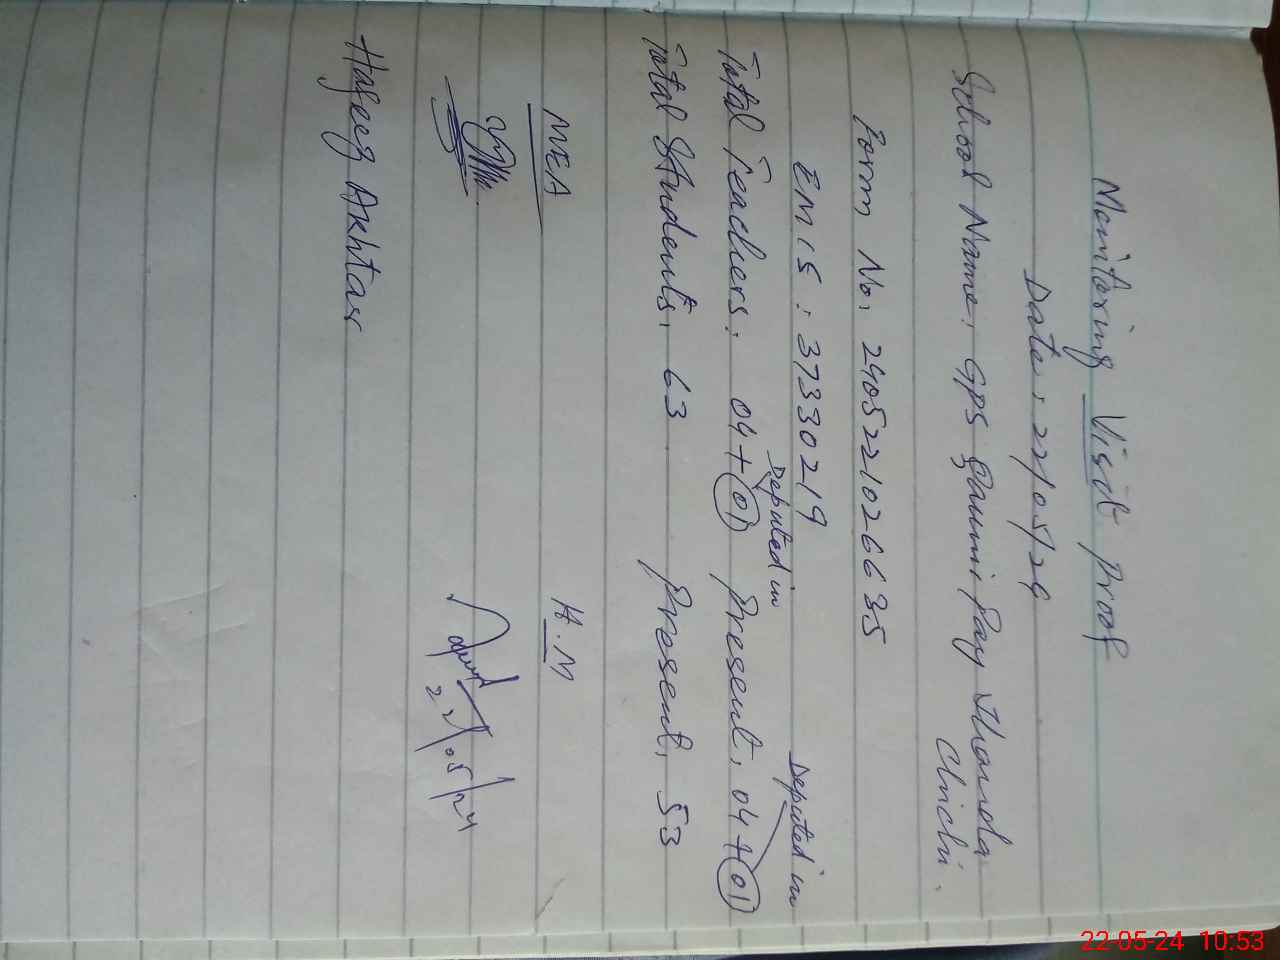 Monitoring Visit Proof
Date: 22/05/24
School Name: GPS Thanda Chichi.
Form No: 2405221026635
EMIS: 37330219
Deputed in Deputed in
Total Teachers: 04+01 Present: 04+01
Total Students: 63 Present: 53
MEA H.M
22/05/24
Haseeq Akhtar
22-05-24 10:53